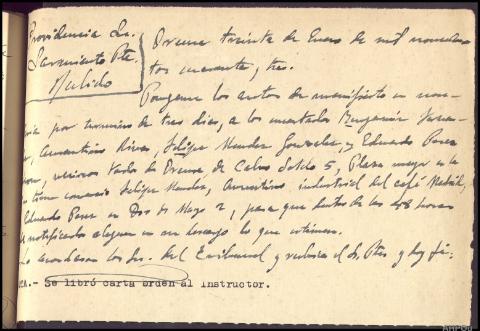 Providencia Sr.
Sarmiento Pte.
Pulido
Orense treinta de Enero de mil novecien
tos cuarenta y tres.
Ponganse los autos de manifiesto en
por termino de tres dias, a los encartados Benjamin
Aurentino Rivas, Felipe Mendez Gonzalez, y Eduardo Perez
vecinos todos de Orense, de Calvo Sotelo 5, Plaza mayor
tiene comercio Felipe Mendez, Aurentino, industrial del café Madrid,
Eduardo Perez en Dos de Mayo 2, para que dentro de las 48 horas
notificados aleguen en su descargo lo que estimen.
Lo acordaron los Srs. del Tribunal y rubrica el Sr. Pte. y doy fé:
CA.- Se libró carta orden al Instructor.